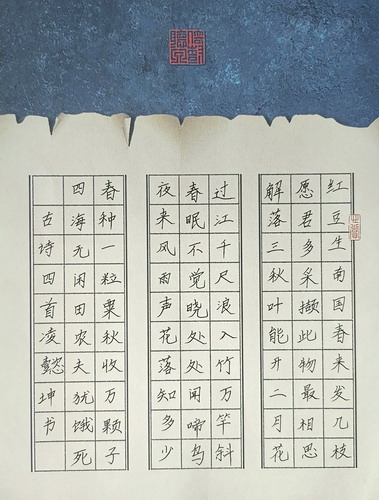 红豆生南国春来发几枝
愿君多采撷此物最相思
解落三秋叶能开二月花
过江千尺浪入竹万竿斜
春眠不觉晓处处闻啼鸟
夜来风雨声花落知多少
春种一粒粟秋收万颗子
四海无闲田农夫犹饿死
古诗四首凌懿坤书